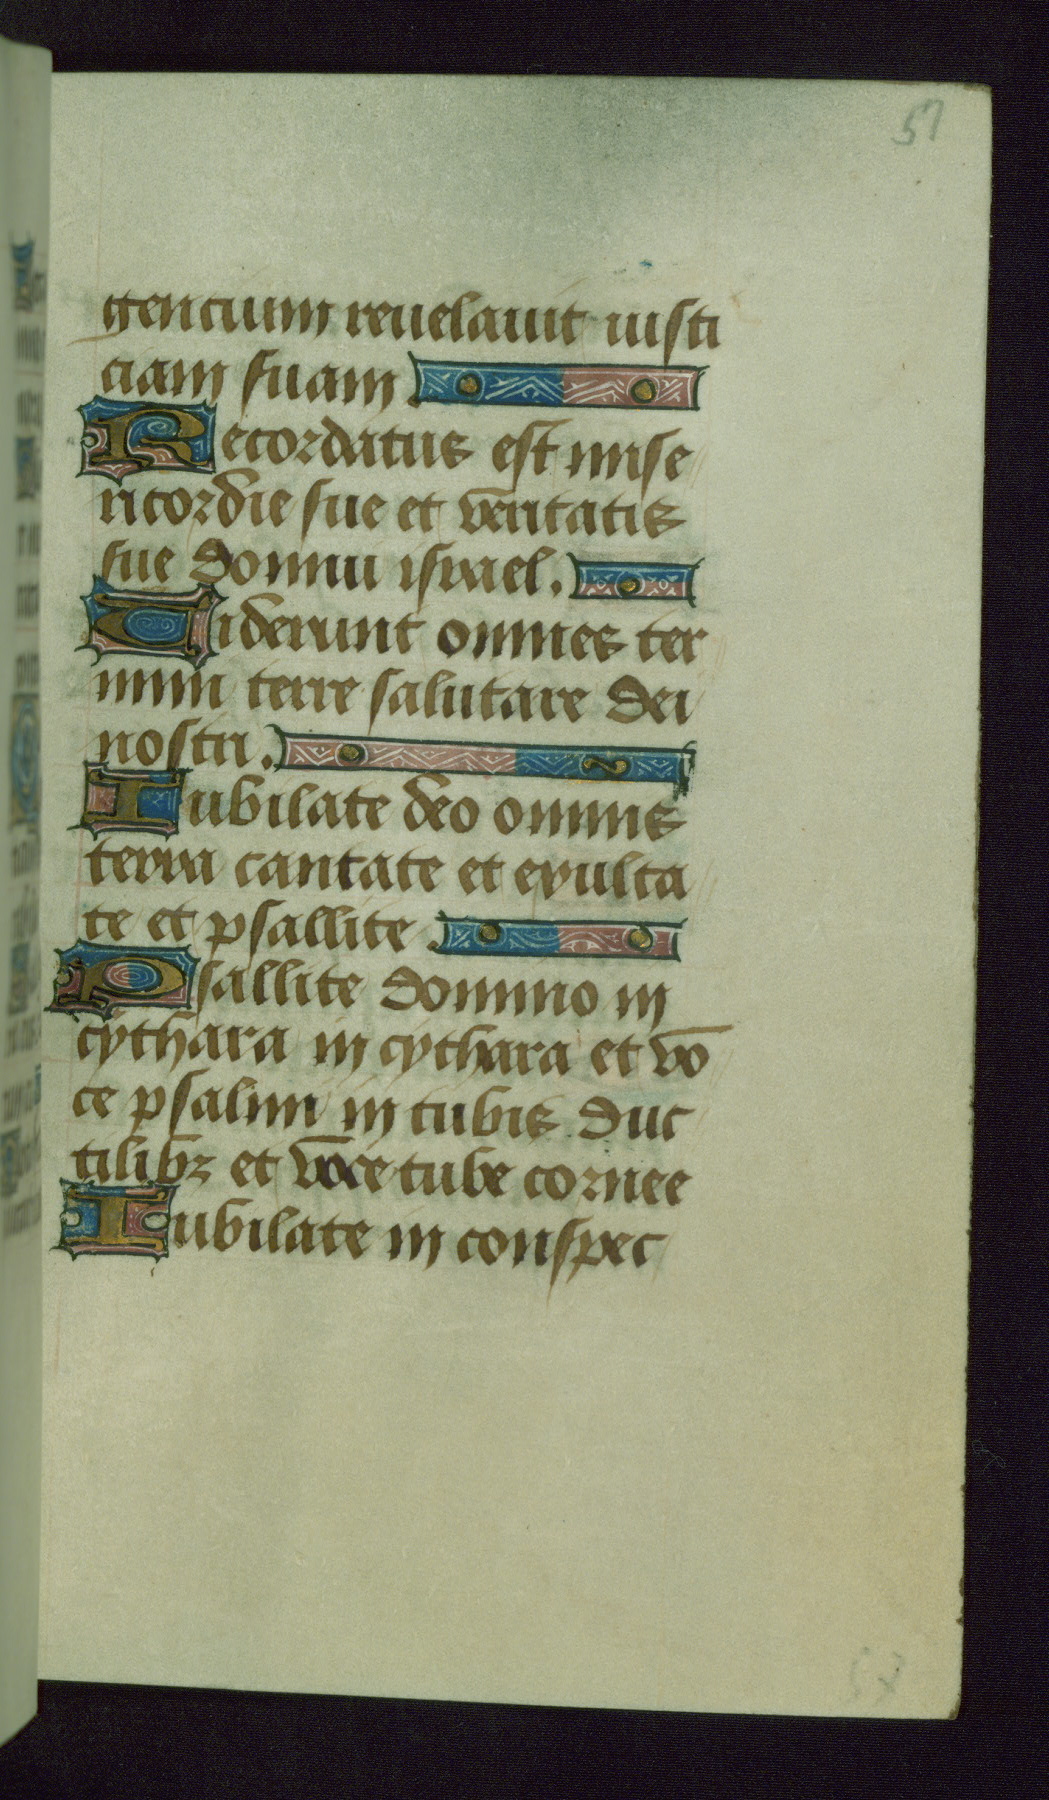 57
gencium reuelauit iusti
ciam suam.
Recordatus est mise
ricordie sue et veritatis
sue domui israel.
Uiderunt omnes ter
mini terre salutare dei
nostri.
Iubilate deo omnis
terra cantate et exulta
te et psallite.
Psallite domino in
cythara in cythara et vo
ce psalmi in tubis duc
tilibꝫ et voce tube cornee
Iubilate in conspec